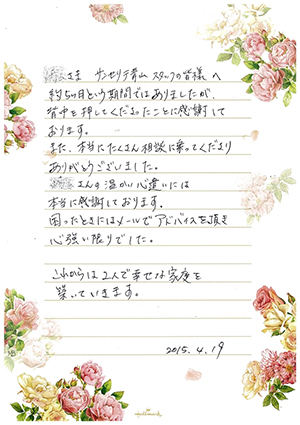 さま サンセリテ青山 スタッフの皆様 へ
約5ヶ月という期間ではありましたが、
背中を押してくださったことに感謝して
おります。
また、本当にたくさん相談に乗ってくださり
ありがとうございました。
さんの温かい心遣いには
本当に感謝しております。
困ったときにはメールでアドバイスを頂き
心強い限りでした。
これからは2人で幸せな家庭を
築いていきます。
2015.4.19
Hallmark